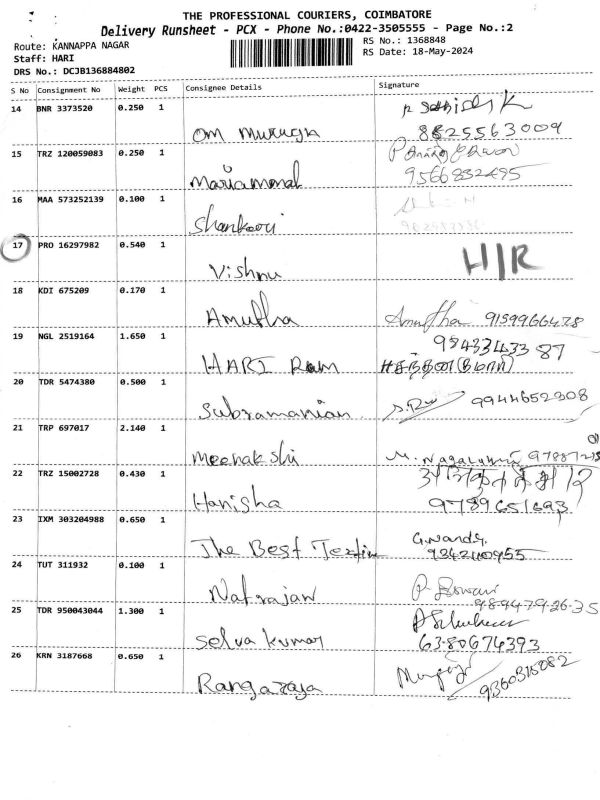 THE PROFESSIONAL COURIERS, COIMBATORE
Delivery Runsheet - PCX - Phone No.:0422-3505555 - Page No.:2
Route: KANNAPPA NAGAR
RS No.: 1368848
Staff: HARI
RS Date: 18-May-2024
DRS No.: DCJB136884802
S No Consignment No Weight PCS Consignee Details Signature
14 BNR 3373520 0.250 1
Om Muruga
8825563009
15 TRZ 120059083 0.250 1
Mariammal
9566832495
16 MAA 573252139 0.100 1
Shankari
17 PRO 16297982 0.540 1 H/R
Vishnu
18 KDI 675209 0.170 1
Amutha Amutha 9159966478
19 NGL 2519164 1.650 1 9843343387
HARI Ram
20 TDR 5474380 0.500 1
Subramanian 9944652308
21 TRP 697017 2.140 1
Meenakshi
22 TRZ 15002728 0.430 1
Hanisha 9789651693
23 IXM 303204988 0.650 1
The Best
24 TUT 311932 0.100 1
Natrajan 9894792635
25 TDR 950043044 1.300 1
Selvakumar 6380674393
26 KRN 3187668 0.650 1
Rangaraja 9360315082